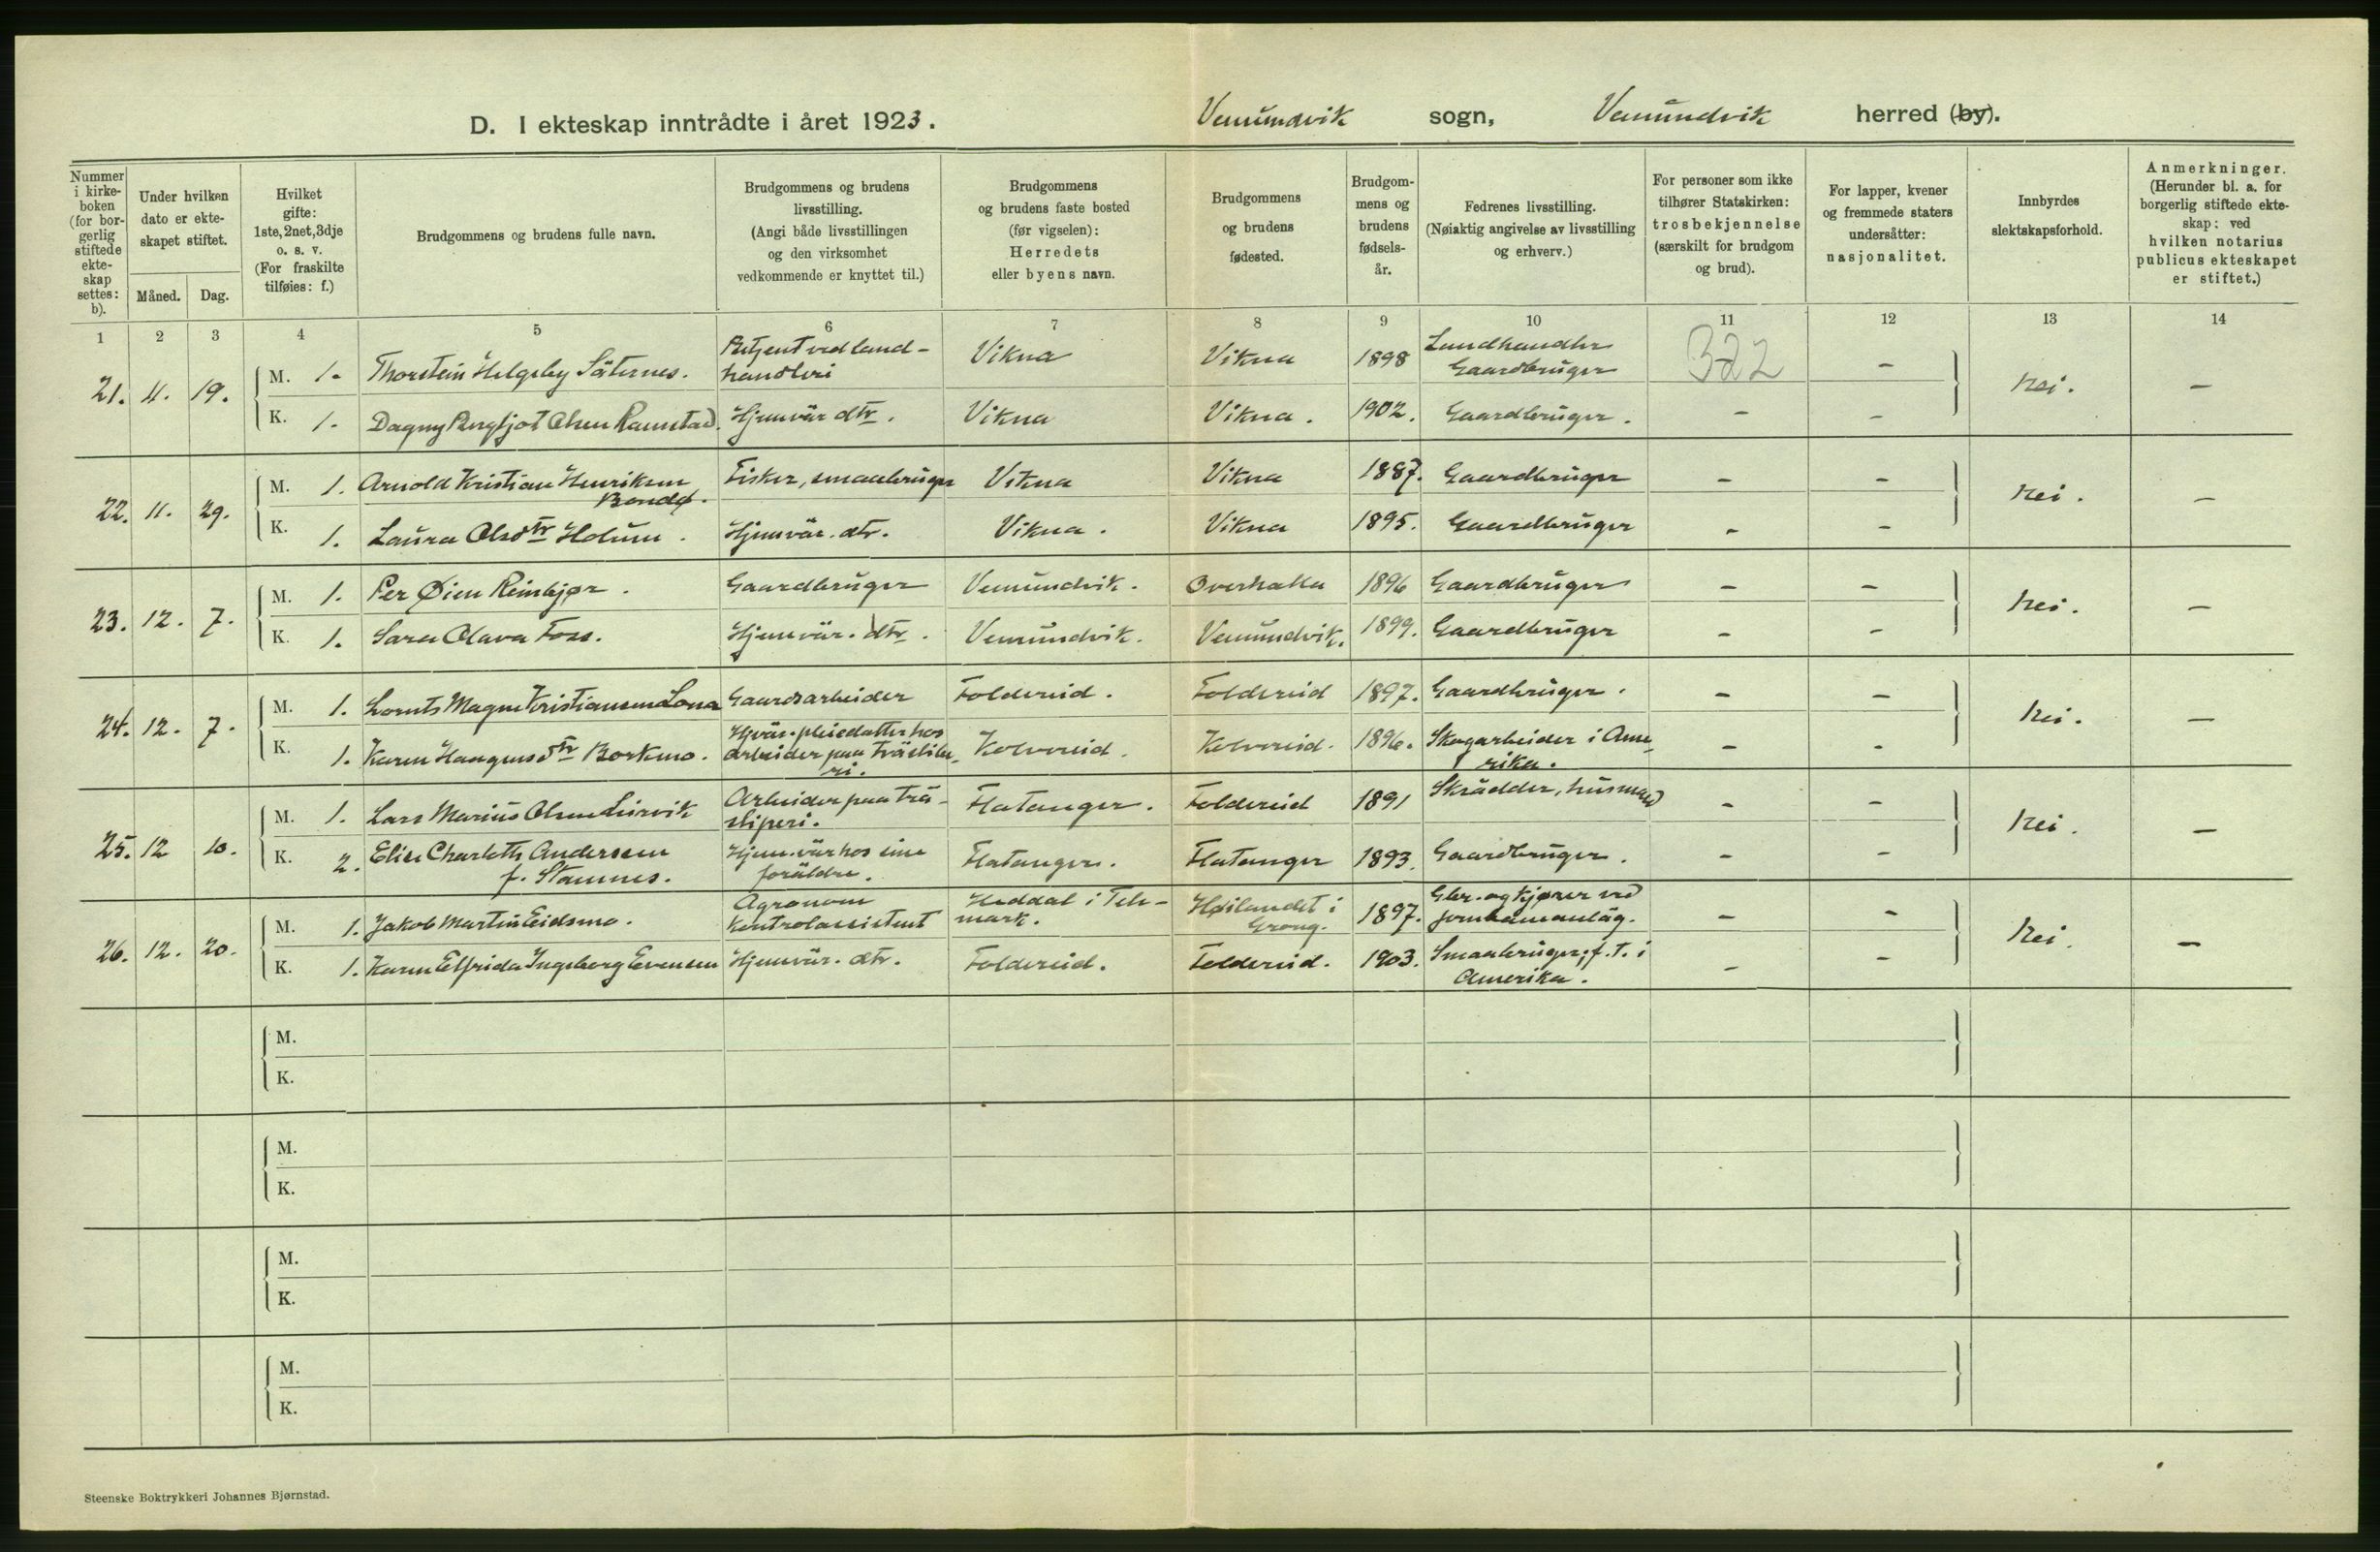 D. I ekteskap inntrådte i året 1923. Vemundvik sogn, Vemundvik herred (by).
Nummer i kirkeboken (for borgerlig stiftede ekteskap settes: b).
Under hvilken dato er ekteskapet stiftet.
Måned. Dag.
Hvilket gifte: 1ste, 2net, 3dje o. s. v. (For fraskilte tilføies: f.)
Brudgommens og brudens fulle navn.
Brudgommens og brudens livsstilling. (Angi både livsstillingen og den virksomhet vedkommende er knyttet til.)
Brudgommens og brudens faste bosted (før vigselen): Herredets eller byens navn.
Brudgommens og brudens fødested.
Brudgommens og brudens fødselsår.
Fedrenes livsstilling. (Nøiaktig angivelse av livsstilling og erhverv.)
For personer som ikke tilhører Statskirken: trosbekjennelse (særskilt for brudgom og brud).
For lapper, kvener og fremmede staters undersåtter: nasjonalitet.
Innbyrdes slektskapsforhold.
Anmerkninger. (Herunder bl. a. for borgerlig stiftede ekteskap: ved hvilken notarius publicus ekteskapet er stiftet.)
1 2 3 4 5 6 7 8 9 10 11 12 13 14
21. 11. 19. M. 1. Thorstein Helgeby Säternes. Betjent ved landhandleri Vikna Vikna 1898 Landhandler Gaardbruger 322 - Nei. -
K. 1. Dagny Bergljot Olsen Ramstad. Hjemvär. dtr. Vikna Vikna. 1902. Gaardbruger. - -
22. 11. 29. M. 1. Arnold Kristian Henriksen Bondø. Fisker, smaabruger Vikna Vikna 1887. Gaardbruger - - Nei. -
K. 1. Laura Olsdtr Holum. Hjemvär. dtr. Vikna. Vikna 1895. Gaardbruger - -
23. 12. 7. M. 1. Per Øien Reinbjør. Gaardbruger Vemundvik. Overhalla 1896 Gaardbruger - - Nei. -
K. 1. Sara Olava Foss. Hjemvär. dtr. Vemundvik. Vemundvik. 1899. Gaardbruger - -
24. 12. 7. M. 1. Lornts Magne Kristiansen Lona Gaardsarbeider Foldereid. Foldereid 1897. Gaardbruger. - - Nei. -
K. 1. Karen Haagensdtr Borkmo. Hjvär. pleiedatter hos arbeider paa träsliberi. Kolvereid. Kolvereid. 1896. Skogarbeider i Amerika. - -
25. 12 10. M. 1. Lars Marius Olsen Leirvik Arbeider paa träsliperi. Flatanger. Foldereid 1891 Skrädder, husmand - - Nei. -
K. 2. Elise Charlotte Andersen f. Stamnes. Hjem. vär hos sine foräldre. Flatanger. Flatanger 1893. Gaardbruger. - -
26. 12. 20. M. 1. Jakob Martin Eidsmo. Agronom Kontrolassistent Heddal i Telemark. Høilandet i Grong. 1897. Gbr. og kjører ved jernbaneanläg. - - Nei. -
K. 1. Karen Elfrida Ingeborg Evensen Hjemvär. dtr. Foldereid. Foldereid. 1903. Smaabruger; f. t. i Amerika. - -
M.
K.
M.
K.
M.
K.
M.
K.
Steenske Boktrykkeri Johannes Bjørnstad.